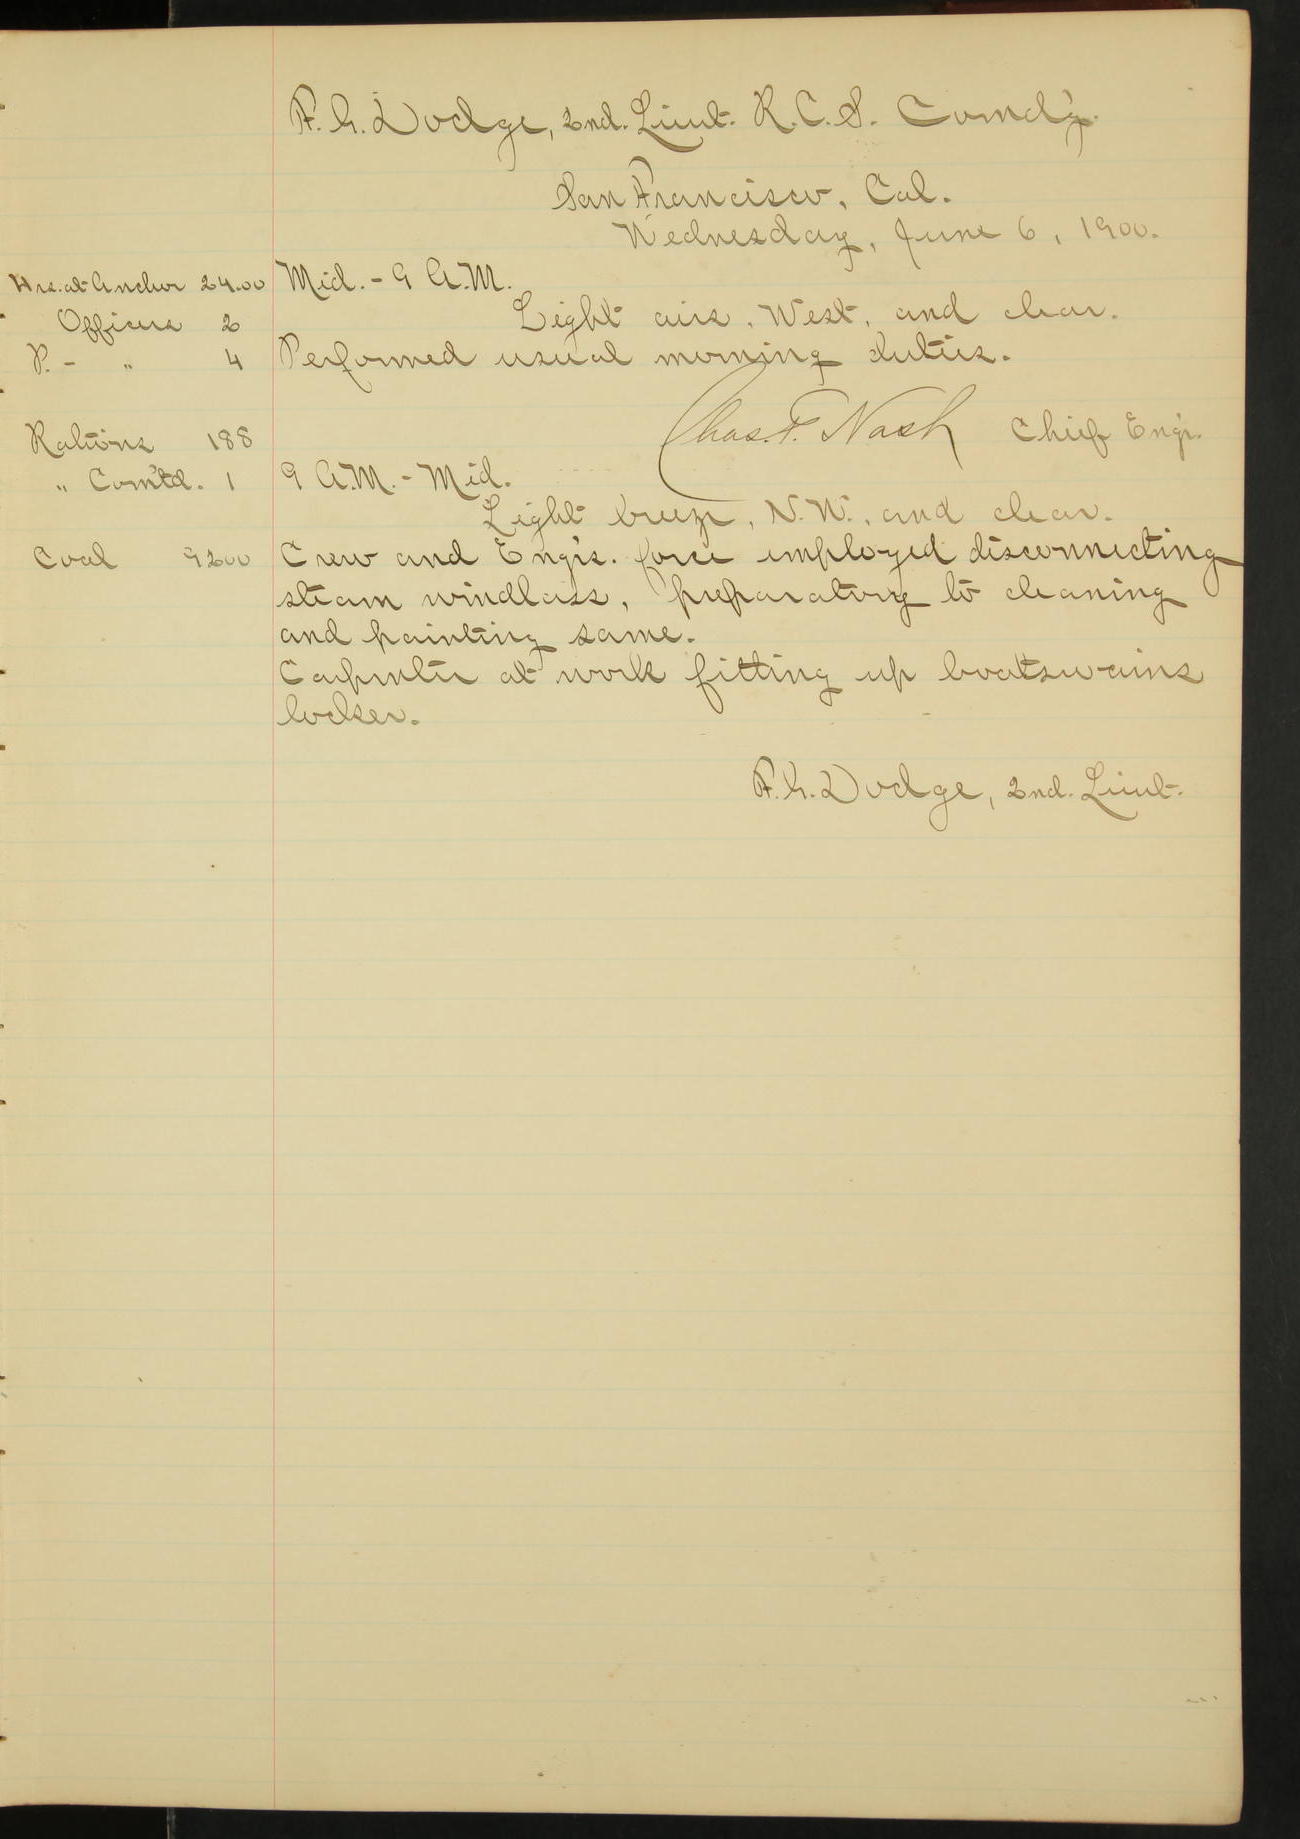 F. G. Dodge, 2nd. Lieut. R. C. S. Comd'g.
San Francisco, Cal.
Wednesday, June 6, 1900.
Hrs. at Anchor 24.00 Mid. - 9 A.M.
Officers 2 Light airs, West, and clear.
P. - " 4 Performed usual morning duties.
Chas. F. Nash Chief Eng'r.
Rations 188
" Com'td. 1 9 A.M. - Mid.
Light breeze, N.W., and clear.
Coal 9200 Crew and Eng'rs. force employed disconnecting
steam windlass, preparatory to cleaning
and painting same.
Carpenter at work fitting up boatswains
locker.
F. G. Dodge, 2nd. Lieut.